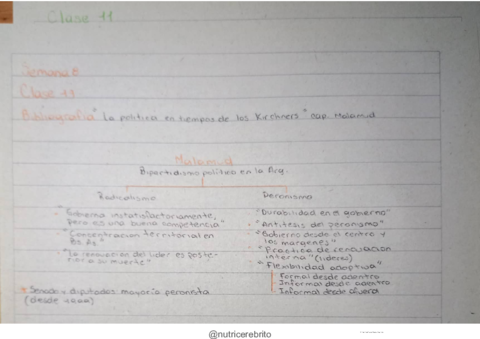 Clase 11
Semana 8
Clase 11
Bibliografia "La politica en tiempos de los Kirchners" cap Malamud
Malamud
Bipartidismo politico en la Arg.
Radicalismo
Peronismo
- "Gobierna insatisfactoriamente,
pero es una buena competencia"
- "Concentracion territorial en
Bs. As"
- "La renovacion del lider es poste-
rior a su muerte"
* Senado y diputados mayoria peronista
(desde
- "Durabilidad en el gobierno"
- "Antitesis del peronismo"
- "Gobierno desde el centro y
los margenes"
- "Practica de renovacion
interna" (lideres)
- "Flexibilidad adaptiva"
Formal desde adentro
Informal desde adentro
Informal desde afuera
@nutricerebrito